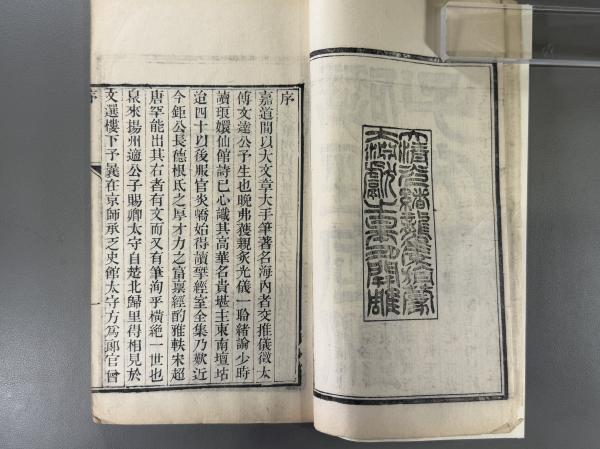 大清光緒龍集
大淵獻上開雕
序
嘉道間以大文章大手筆著名海內者交推儀徵太
傅文達公予生也晚弗獲親炙光儀一聆緒論少時
讀琅嬛仙館詩已心識其高華名貴堪主東南壇坫
迨四十以後服官炎嶠始得讀揅經室全集乃歎近
今鉅公長德根氐之厚才力之富稟經酌雅軼宋超
唐罕能出其右者有文而又有筆洵乎橫絕一世也
泉來揚州適公子賜卿太守自楚北歸里得相見於
文選樓下予曩在京師承乏史館太守方爲郎官曾
序